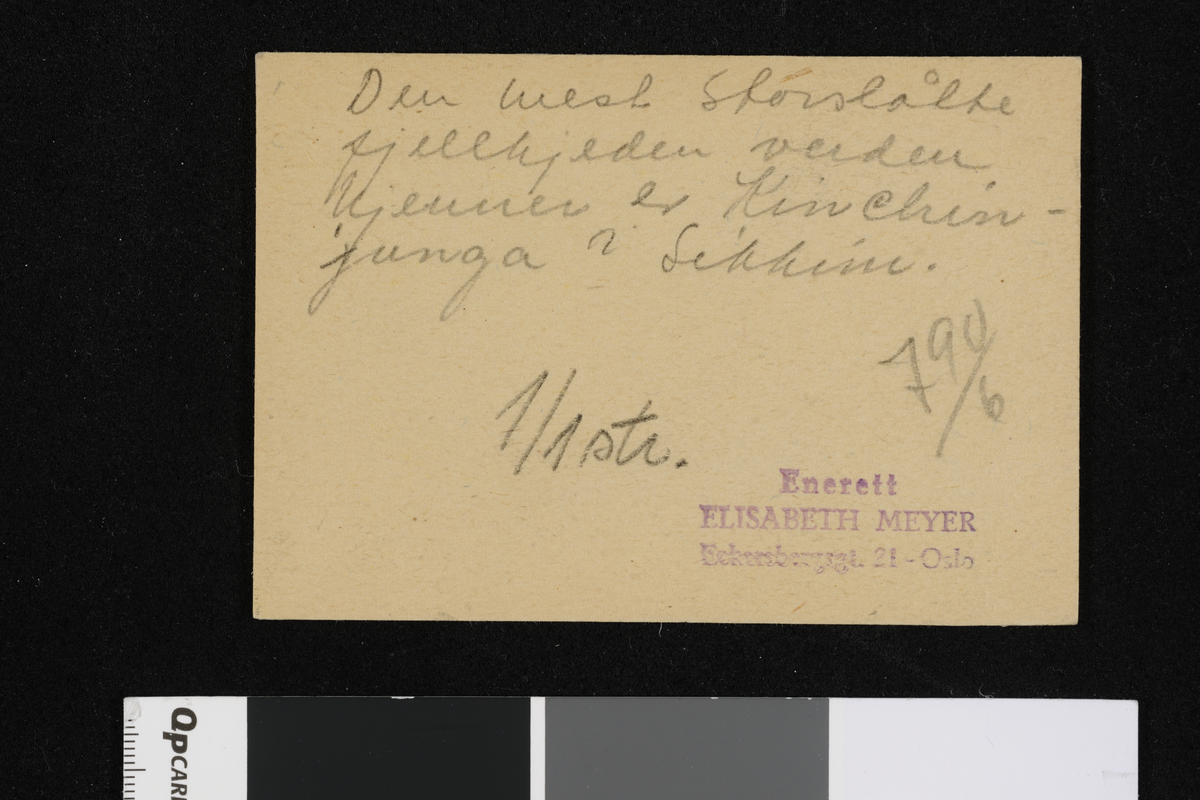 Den mest storslåtte
fjellkjeden verden
kjenner er Kinchin-
junga i Sikkim.
790/6
1/1 str.
Enerett
ELISABETH MEYER
Eckersbergsgt. 21 - Oslo
QPCARD